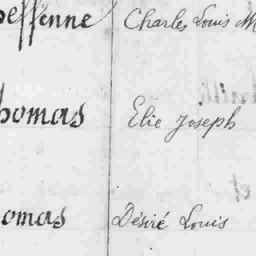 peffenne Charles Louis M
homas Elie Joseph
omas Désiré Louis